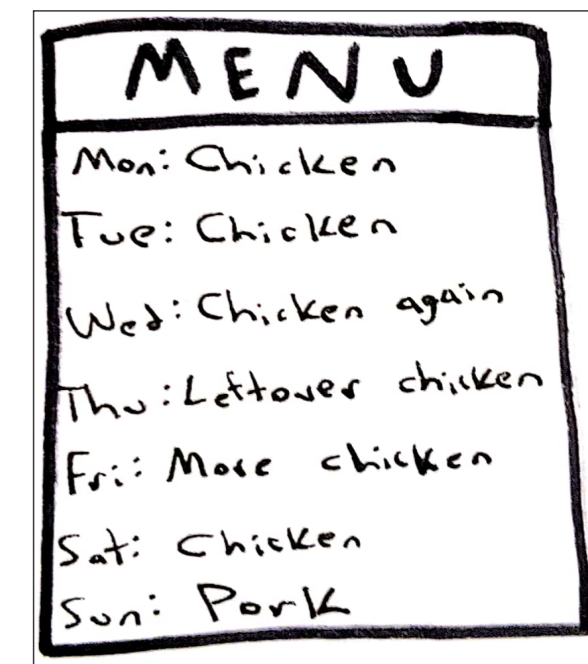 MENU
Mon: Chicken
Tue: Chicken
Wed: Chicken again
Thu: Leftover chicken
Fri: More chicken
Sat: Chicken
Sun: Pork